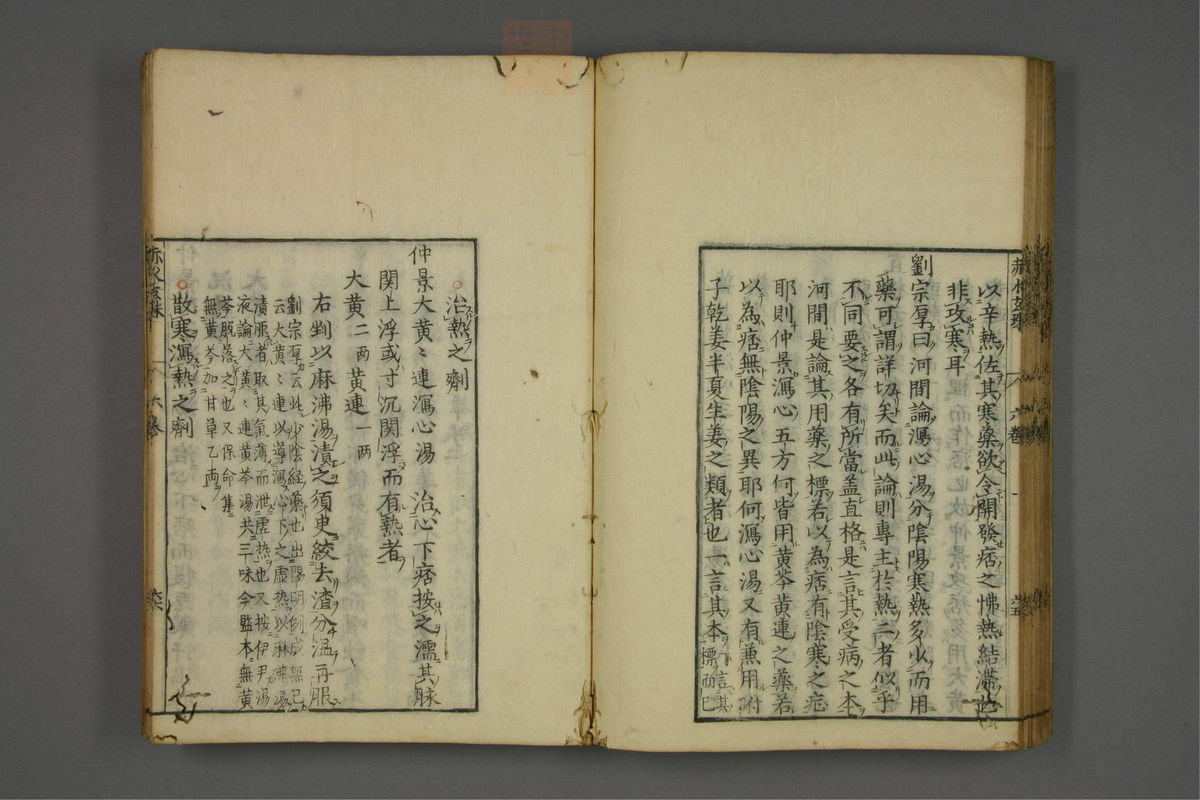 以辛熱佐其寒藥欲令開發痞之怫熱結滯
非攻寒耳
劉宗厚曰河間論瀉心湯分陰陽寒熱多少而用
藥可謂詳切矣而此論則專主於熱二者似乎
不同要之各有所當盖直格是言其受病之本
河間是論其用藥之標若以為痞有陰寒之
耶則仲景瀉心五方何皆用黄芩黄連之藥若
以為痞無陰陽之異耶何瀉心湯又有兼用附
子乾姜半夏生姜之類者也一言其本標而已一言其
治熱之劑
仲景大黄〻連瀉心湯 治心下痞按之濡其脉
関上浮或寸沉関浮而有熱者
大黄二两黄連一两
右剉以麻沸湯漬之須臾絞去渣分温再服
劉宗厚云此少陰経藥也出陽明例成無已
云大黄〻連以導瀉心下之虚熱以麻沸湯
漬服者取其氣薄而泄虚熱也又按伊尹湯
液論大黄〻連黄芩湯共三味今監本無黄
芩脱落之也又保命集
無黄芩加甘草乙两
散寒瀉熱之劑